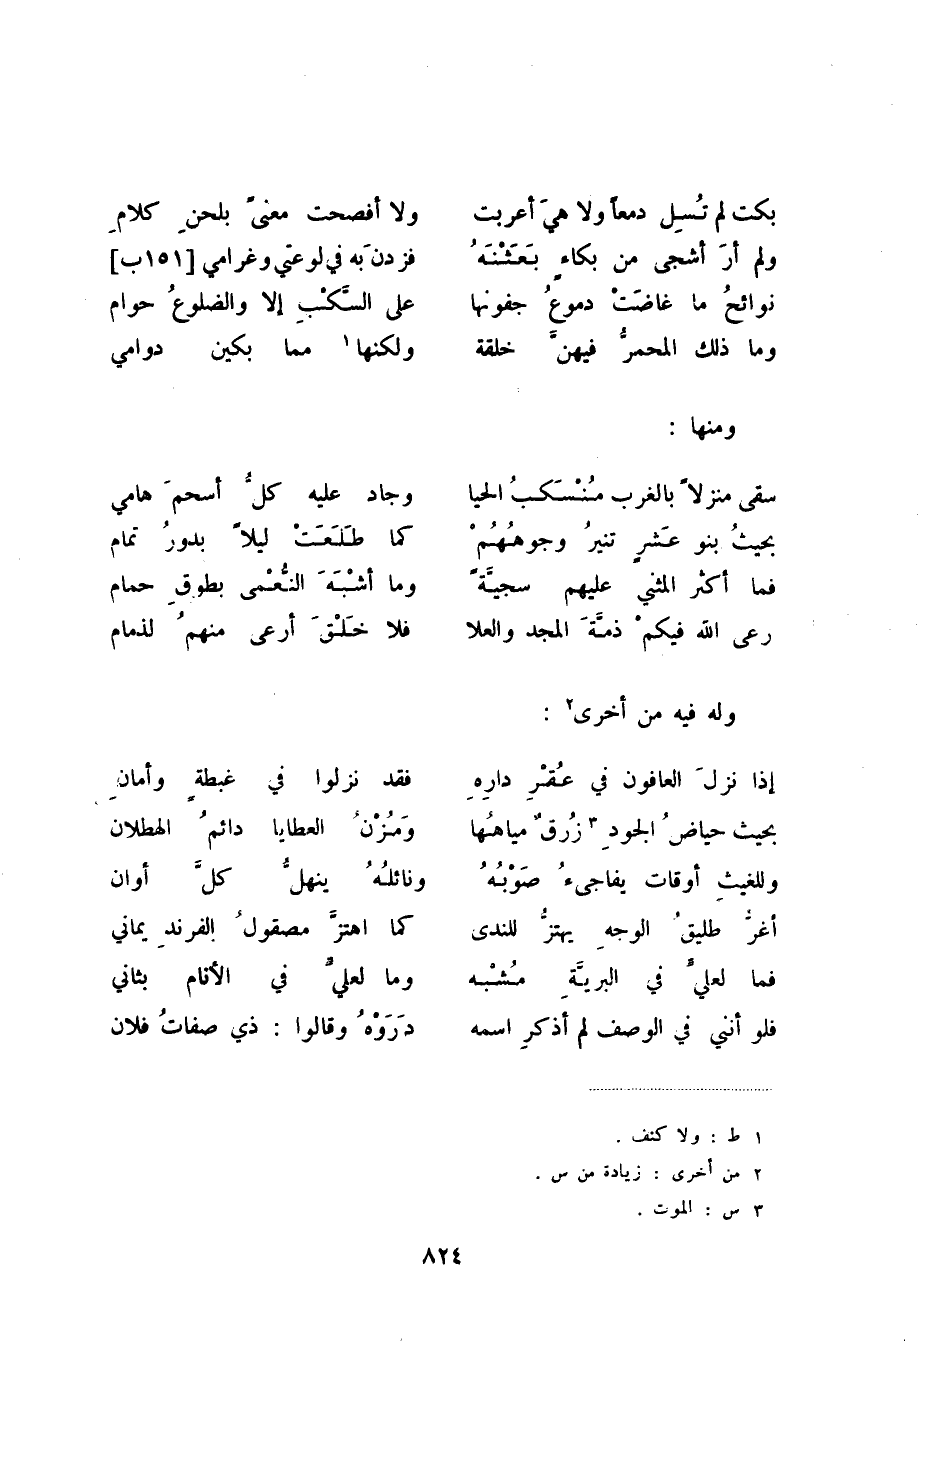 بكت لم تُسِل دمعاً ولا هيَ أعربت ولا أفصحت معنىً بلحنِ كلامِ
ولم أرَ أشجى من بكاءٍ بَعَثْنَهُ فزدنَ به في لوعتي وغرامي [١٥١ب]
نوائحُ ما غاضَتْ دموعُ جفونها على السَّكْبِ إلا والضلوعُ حوام
وما ذلك المحمرُّ فيهنَّ خلقة ولكنها١ مما بكين دوامي
ومنها :
سقى منزلاً بالغرب مُنْسَكبُ الحيا وجاد عليه كلُّ أسحمَ هامي
بحيثُ بنو عَشرٍ تنيرُ وجوهُهُمْ كما طَلَعَتْ ليلاً بدورُ تمام
فما أكثر المثني عليهم سجيَّةً وما أشْبَهَ النُّعْمى بطوقِ حمام
رعى الله فيكمْ ذمَّةَ المجد والعلا فلا خَلْقَ أرعى منهمُ لذمام
وله فيه من أخرى٢ :
إذا نزلَ العافون في عُقْرِ دارِهِ فقد نزلوا في غبطةٍ وأمانِ
بحيث حياضُ الجودِ٣ زُرقٌ مياهُها وَمُزْنُ العطايا دائمُ الهطلان
وللغيثِ أوقات يفاجىءُ صَوْبُهُ ونائلُهُ ينهلُّ كلَّ أوان
أغرُّ طليقُ الوجهِ يهتزُّ للندى كما اهتزَّ مصقولُ الفرندِ يماني
فما لعليٍّ في البريَّةِ مُشْبه وما لعليٍّ في الأنام بثاني
فلو أنني في الوصف لم أذكرِ اسمه دَرَوْهُ وقالوا : ذي صفاتُ فلان
١ ط : ولا كنف .
٢ من أخرى : زيادة من س .
٣ س : الموت .
٨٢٤